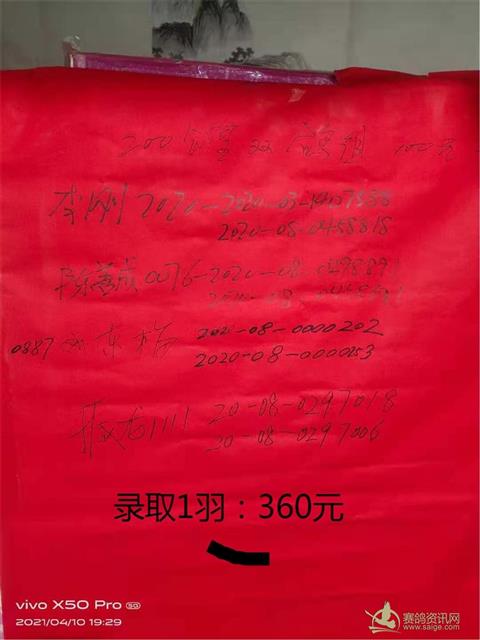 200公里双 组 100元
李刚 2020-2020-03-1407888
2020-08-0458818
陈善成 0076-2020-08-0498891
0887 东梅 2020-08-0000202
2020-08-0000253
龙1111 20-08-0297018
20-08-0297006
录取1羽：360元
vivo X50 Pro 5G
2021/04/10 19:29
赛鸽资讯网
www.saige.com